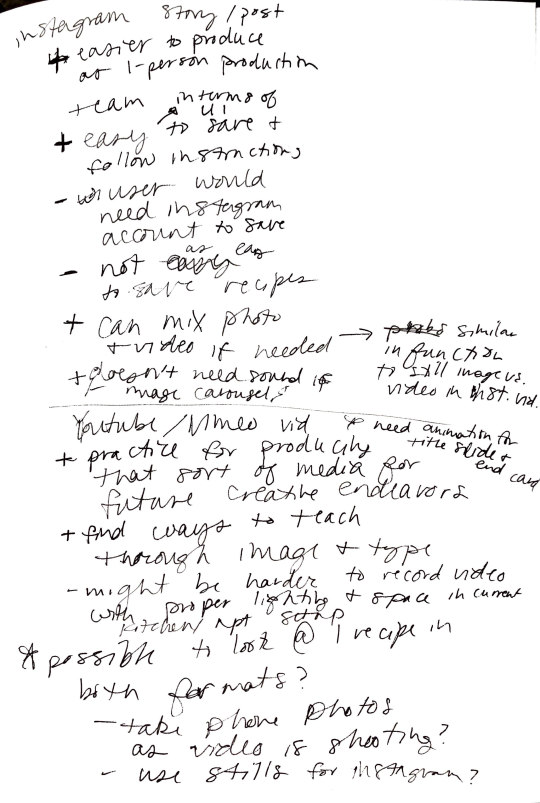 instagram story/post
+ easier to produce
as 1-person production
team in terms of
UI
+ easy to save +
follow instructions
- user would
need instagram
account to save
- not as easy
to save recipes
+ can mix photo
+ video if needed → similar
in function
to still image vs.
video in inst. vid.
+ doesn't need sound if
image carousel
Youtube/Vimeo vid * need animation for
title slide +
end card
+ practice for producing
that sort of media for
future creative endeavors
+ find ways to teach
thorough image + type
- might be harder to record video
with proper lighting + space in current
kitchen/apt setup
* possible to look @ 1 recipe in
both formats?
- take phone photos
as video is shooting?
- use stills for instagram?